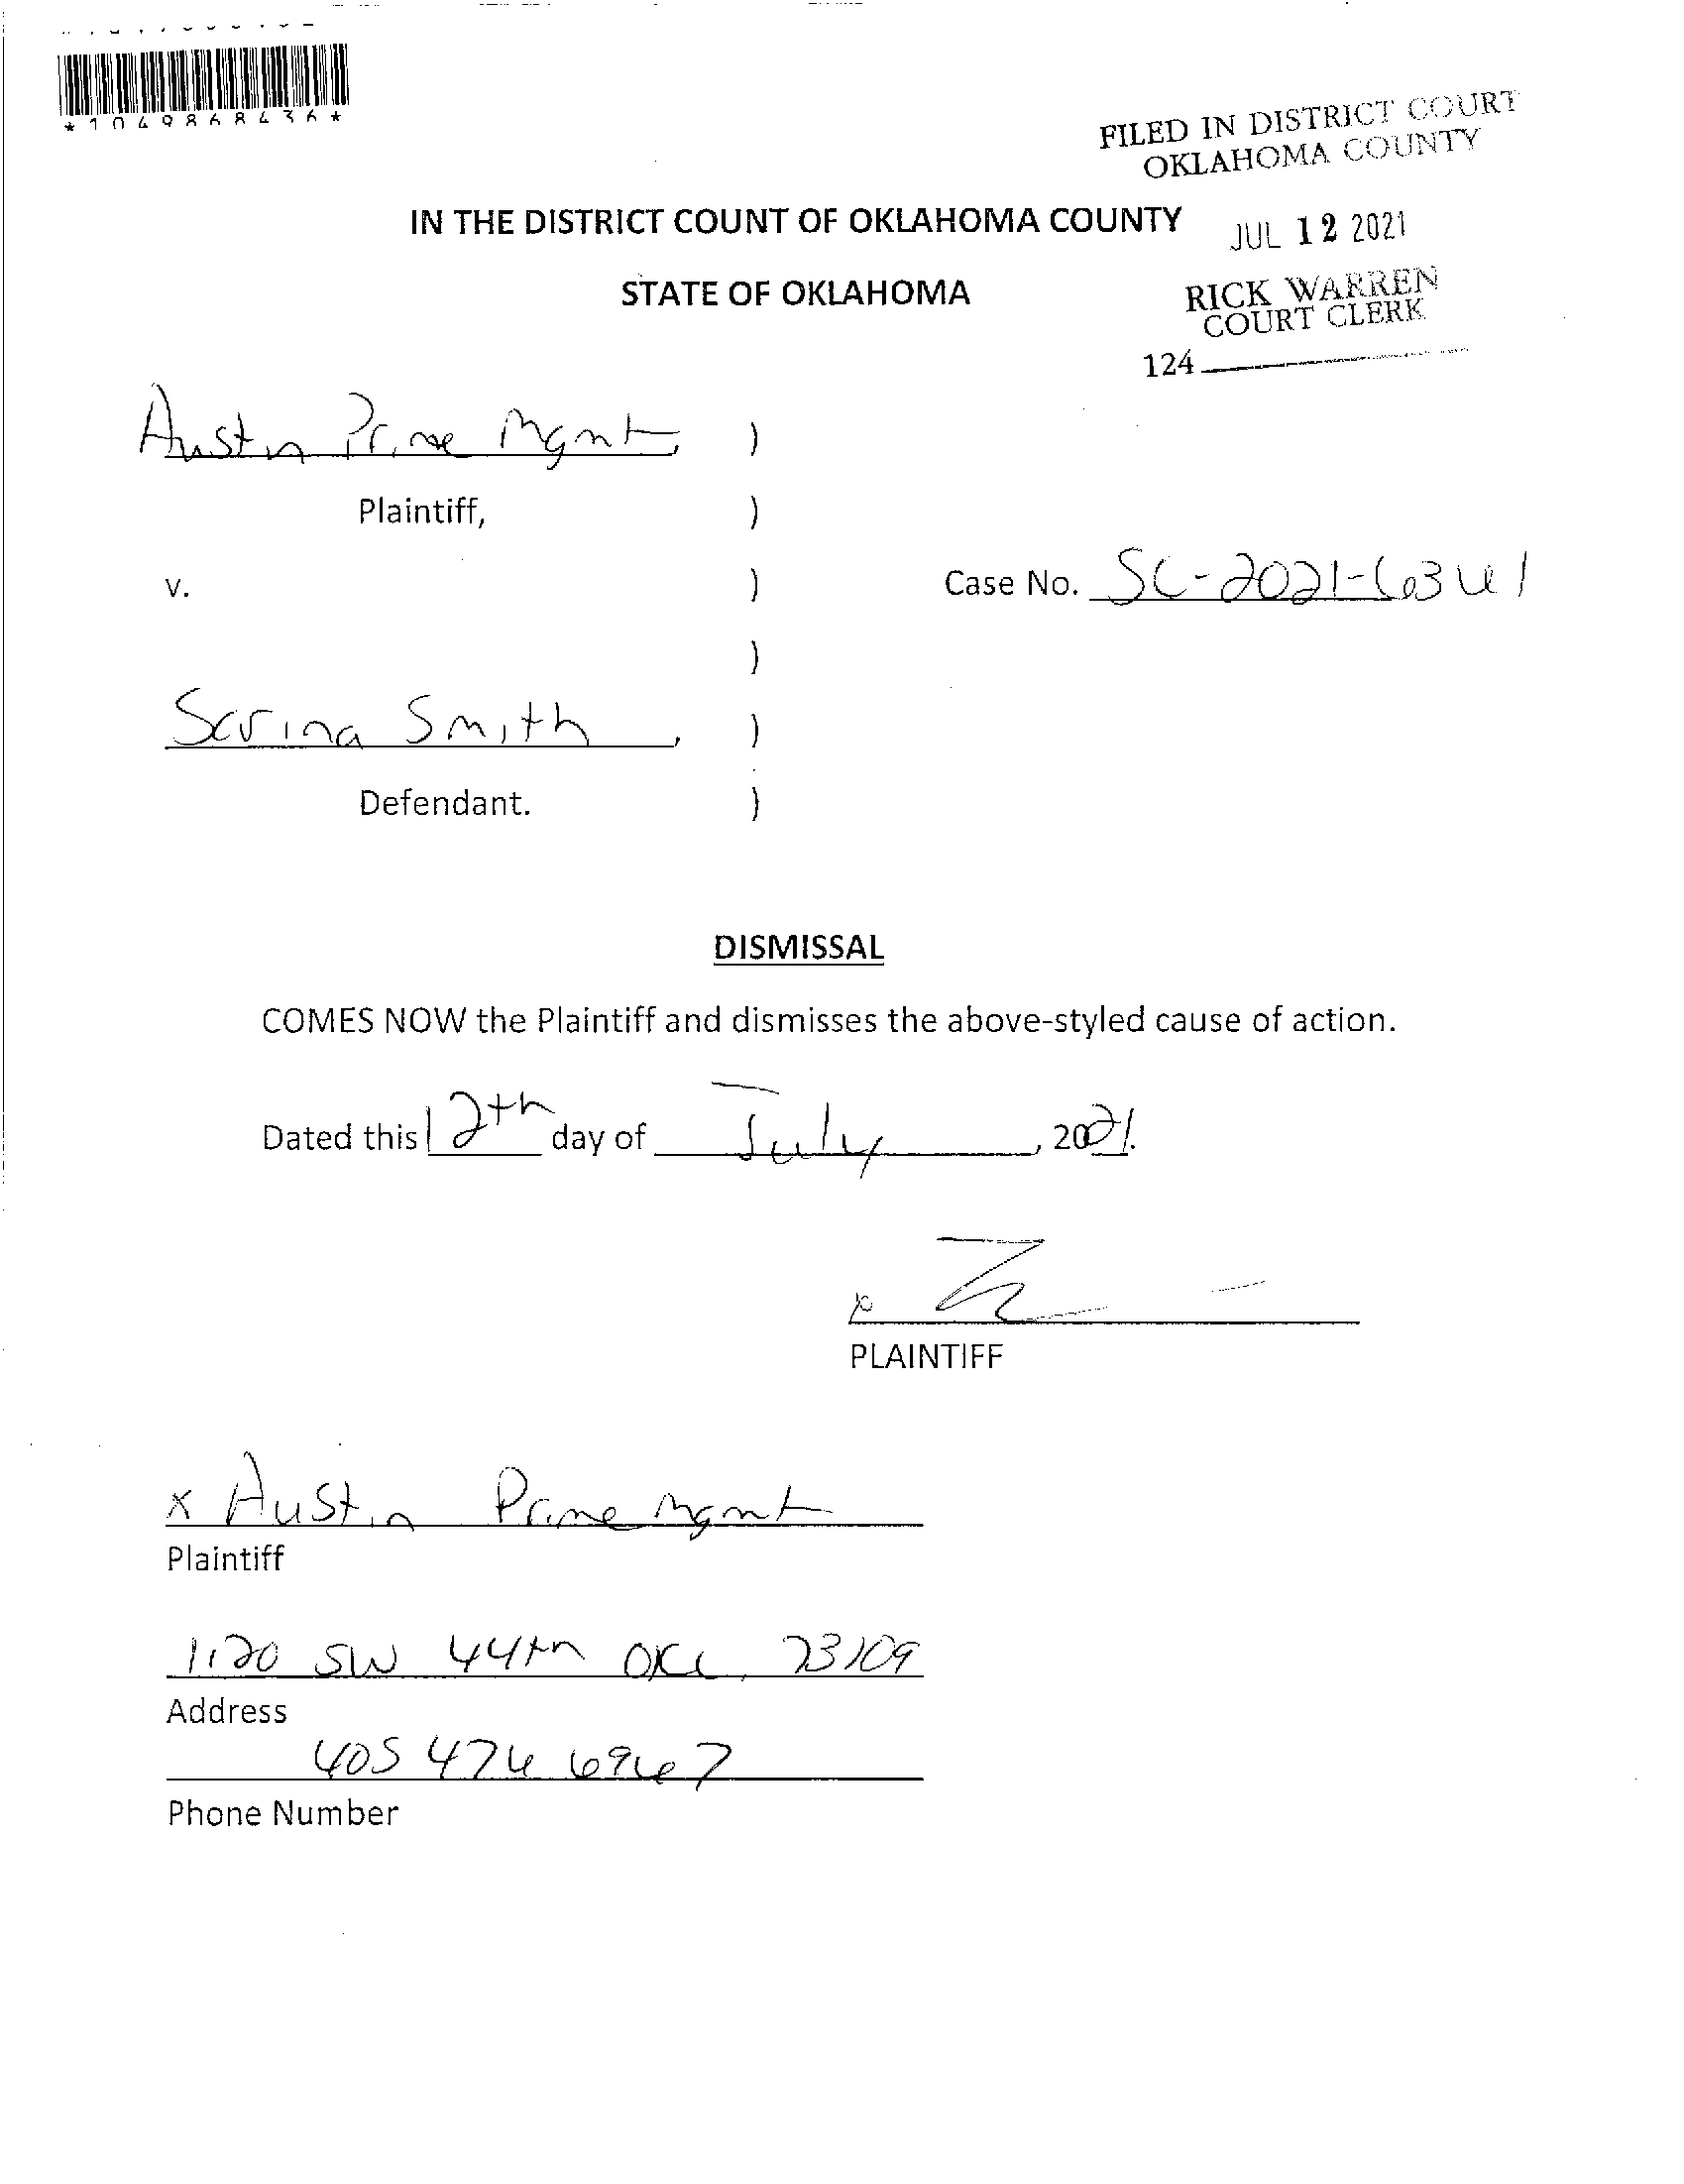 *1049868436*
FILED IN DISTRICT COURT
OKLAHOMA COUNTY
IN THE DISTRICT COUNT OF OKLAHOMA COUNTY
JUL 12 2021
STATE OF OKLAHOMA
RICK WARREN
COURT CLERK
124
Austin Prime Mgmt, )
Plaintiff, )
v. ) Case No. SC-2021-6361
)
Sarina Smith, )
Defendant. )
DISMISSAL
COMES NOW the Plaintiff and dismisses the above-styled cause of action.
Dated this 12th day of July, 2021.
x
PLAINTIFF
x Austin Prime Mgmt
Plaintiff
1120 SW 44th OKC, 73109
Address
405 476 6967
Phone Number